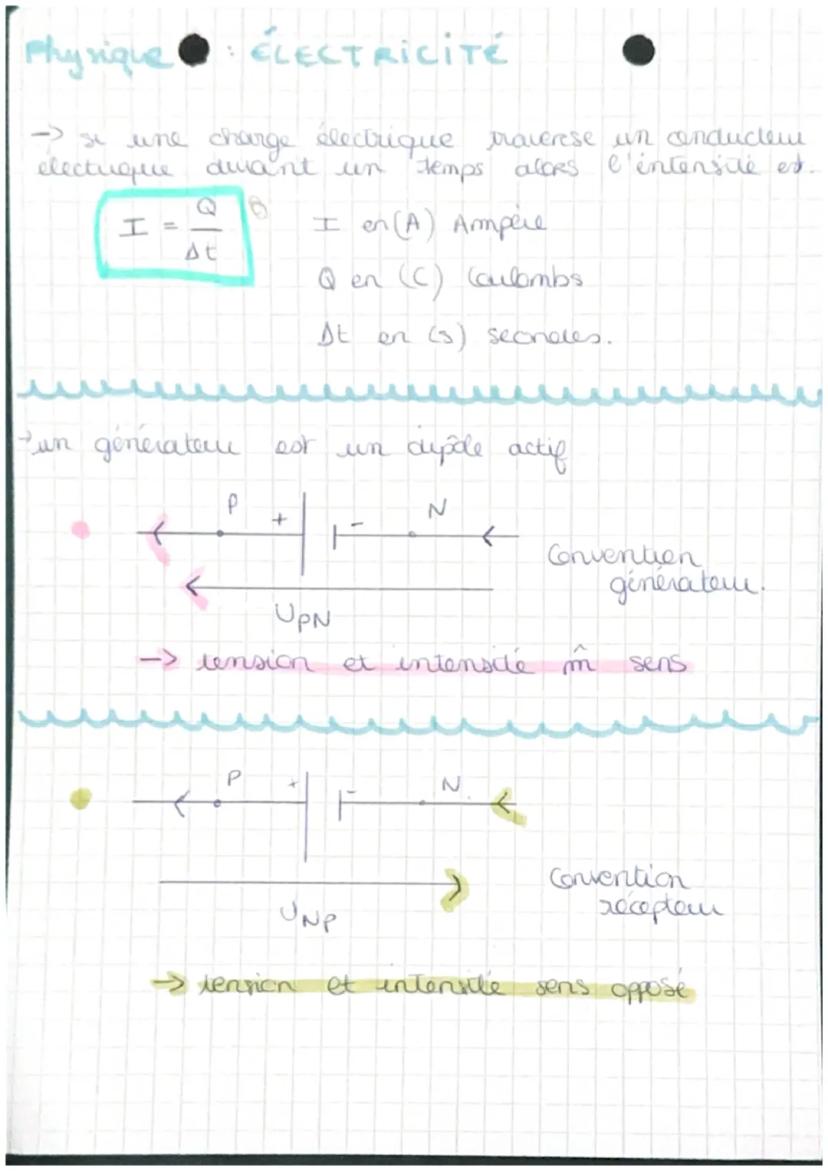 Physique : ÉLECTRICITÉ
-> si une charge électrique traverse un conducteur
électrique durant un temps alors l'intensité est.
I = Q / Δt
I en (A) Ampère
Q en (C) Coulombs
Δt en (s) secondes.
-> un générateur est un dipôle actif
P + - N
Convention
générateur.
UPN
-> tension et intensité m̂ sens
P + - N.
Convention
récepteur
UNP
-> tension et intensité sens opposé